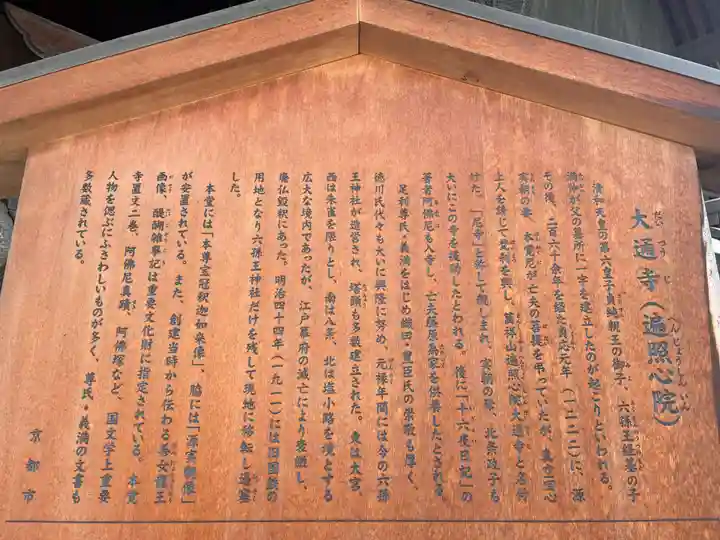 大通寺（遍照心院）
清和天皇の第六皇子貞純親王の御子、六孫王経基の子
満仲が父の墓所に一宇を建立したのが起こりといわれる。
その後、二百六十余年を経た貞応元年（一二二二）に、源
実朝の妻、本覚尼が亡夫の菩提を弔っていたが、真空回心
上人を請じて梵刹を興し、萬祥山遍照心院大通寺と名付
けた。「尼寺」と称して親しまれ、実朝の母、北条政子も
大いにこの寺を援助したといわれる。後に「十六夜日記」の
著者阿佛尼も入寺し、亡夫藤原為家を供養したとされる
足利尊氏、義満をはじめ織田・豊臣氏の崇敬も厚く、
徳川氏代々も大いに興隆に努め、元禄年間には今の六孫
王神社が造営され、塔頭も多数建立された。東は大宮、
西は朱雀を限りとし、南は八条、北は塩小路を境とする
広大な境内であったが、江戸幕府の滅亡により衰微し、
廃仏毀釈にあった。明治四十四年（一九一一）には旧国鉄の
用地となり六孫王神社だけを残して現地に移転し逼塞
した。
本堂には「本尊宝冠釈迦如来像」、脇には「源実朝像」
が安置されている。また、創建当時から伝わる善女龍王
画像、醍醐雑事記は重要文化財に指定されている。本覚
寺置文二巻、阿佛尼真蹟、阿佛塚など、国文学上重要
人物を偲ぶにふさわしいものが多く、尊氏・義満の文書も
多数蔵されている。
京都市